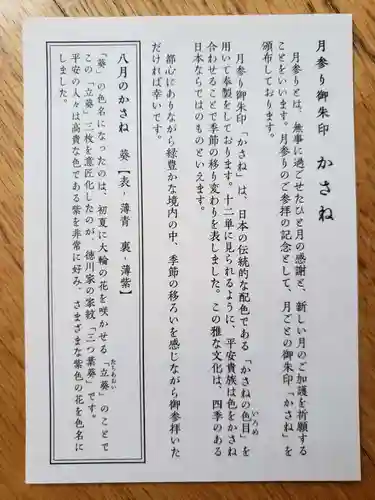 月参り御朱印 かさね
月参りとは、無事に過ごせたひと月の感謝と、新しい月のご加護を祈願する
ことをいいます。月参りのご参拝の記念として、月ごとの御朱印「かさね」を
頒布しております。
月参り御朱印「かさね」は、日本の伝統的な配色である「かさねの色目」を
いろめ
用いて奉製をしております。十二単に見られるように、平安貴族は色をかさね
合わせることで季節の移り変わりを表しました。この雅な文化は、四季のある
日本ならではのものといえます。
都心にありながら緑豊かな境内の中、季節の移ろいを感じながら御参拝いた
だければ幸いです。
八月のかさね 葵【表-薄青 裏-薄紫】
「葵」の色名になったのは、初夏に大輪の花を咲かせる「立葵」のことで
たちあおい
この「立葵」三枚を意匠化したのが、徳川家の家紋「三つ葉葵」です。
平安の人々は高貴な色である紫を非常に好み、さまざまな紫色の花を色名に
しました。